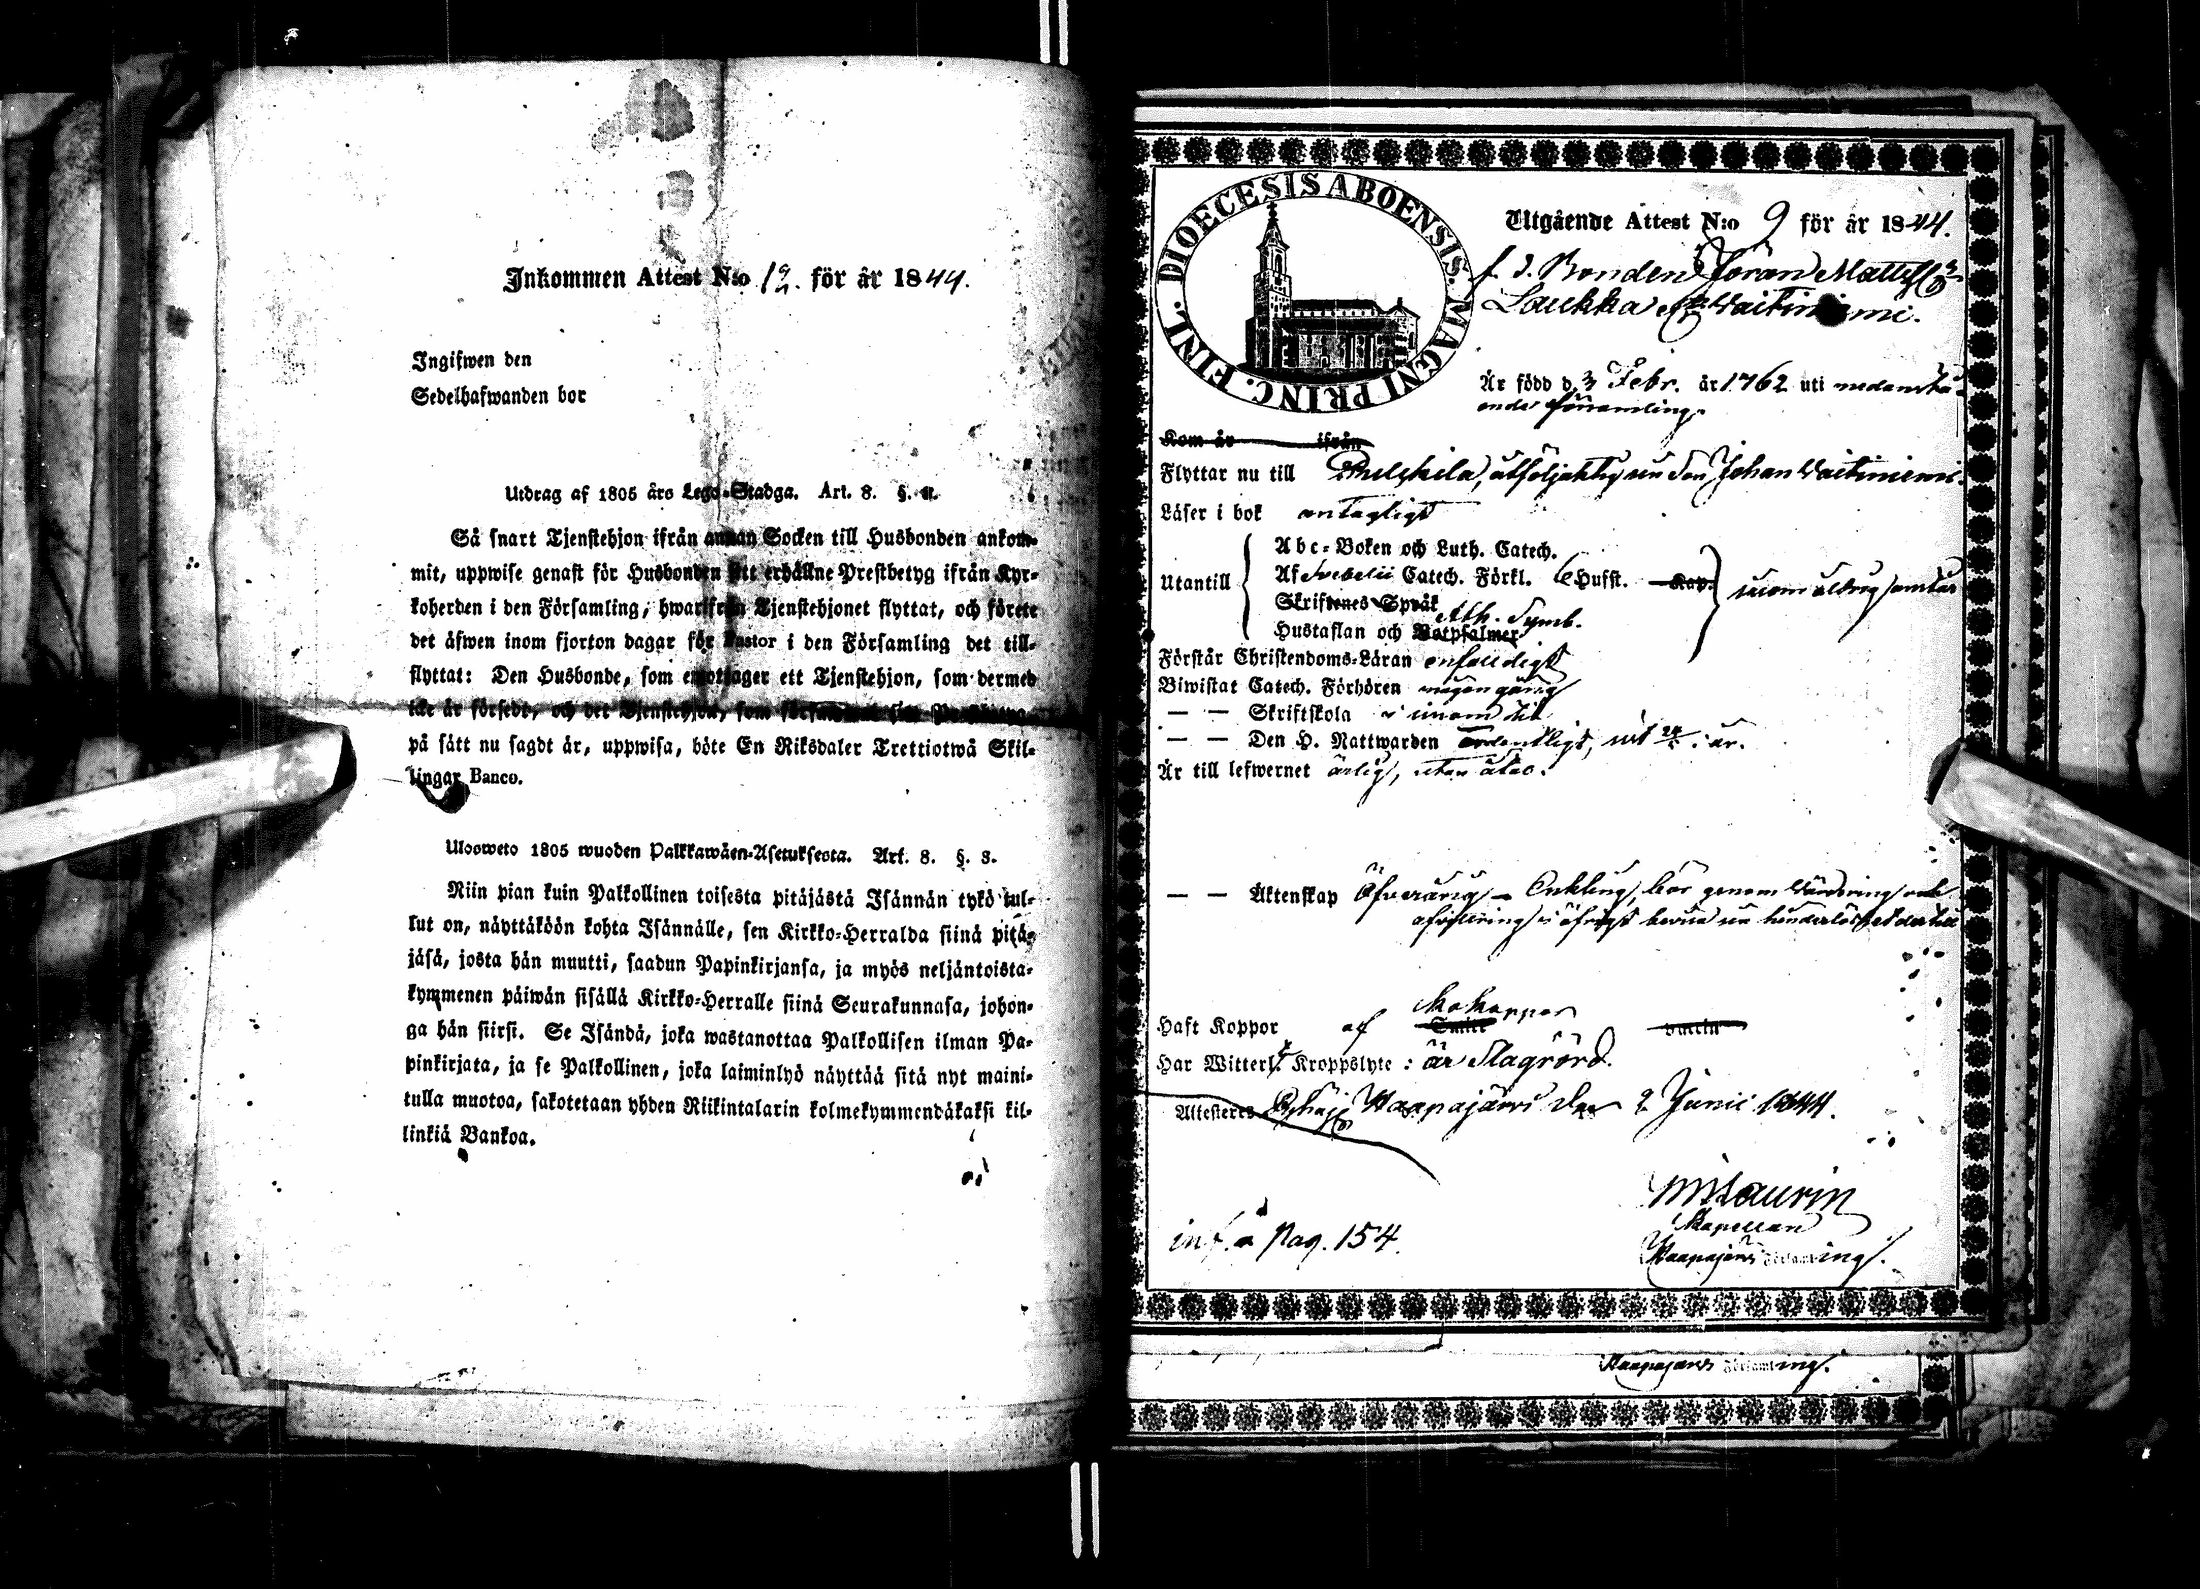 Inkommen Attest N:o 12. för år 1844.
Ingifwen den
Sedelhafwanden bor
Utdrag af 1805 års Lego-Stadga. Art. 8. §.
Så snart Tjenstehjon ifrån annan Socken till Husbonden ankom-
mit, uppwise genast för Husbonden sitt erhållne Prestbetyg ifrån Kyr-
koherden i den Församling, hwarifrån Tjenstehjonet flyttat, och förete
det äfwen inom fjorton dagar för Pastor i den Församling det till-
flyttat: Den Husbonde, som emottager ett Tjenstehjon, som dermed
icke är försedt, och det Tjenstehjon, som
på sätt nu sagdt är, uppwisa, böte En Riksdaler Trettiotwå Skil-
lingar Banco.
Ulosweto 1805 wuoden Palkkawäen-Asetuksesta. Art. 8. §. 8.
Niin pian kuin Palkollinen toisesta pitäjästä Isännän tykö tul-
lut on, näyttäköön kohta Isännälle, sen Kirkko-Herralda siinä pitä-
jäsä, josta hän muutti, saadun Papinkirjansa, ja myös neljäntoista-
kymmenen päiwän sisällä Kirkko-Herralle siinä Seurakunnasa, johon-
ga hän siirsi. Se Isändä, joka wastanottaa Palkollisen ilman Pa-
pinkirjata, ja se Palkollinen, joka laiminlyö näyttää sitä nyt maini-
tulla muotoa, sakotetaan yhden Riikintalarin kolmekymmendäkaksi kil-
linkiä Bankoa.
DIOECESIS ABOENSIS. MAGNI PRINC. FINL.
Utgående Attest N:o 9 för år 1844.
f. d. Bonden Jöran Mattss
Laukka Waitiniemi.
Är född d. 3 Febr. år 1762 uti nedanstå-
ende församling.
Kom år ifrån
Flyttar nu till åtföljaktig sin Son Johan Waitiniemi.
Läser i bok antagligt
Utantill
Abc-Boken och Luth. Catech.
Af Svebelii Catech. Förkl. Hufst. Kap.
Skriftenes Språk Ath. Symb.
Hustaflan och Botpsalmer
Förstår Christendoms-Läran enfaldigt
Biwistat Catech. Förhören någon gång
— — Skriftskola i sinom tid
— — Den H. Nattwarden ordentligt, i år.
Är till lefwernet ärlig, utan
— — Äktenskap Öfverårig Enkling, bör genom Wärdering och
afvittring
Haft Koppor af kokoppor
Har Witterl. Kroppslyte : är Slagrörd.
Attesteres Pyhäj Haapajärvi den 2 Junii 1844.
Laurin
Kapellan
Haapajärvi Församling.
inf. å Pag. 154.
Haapajärvi Församling.